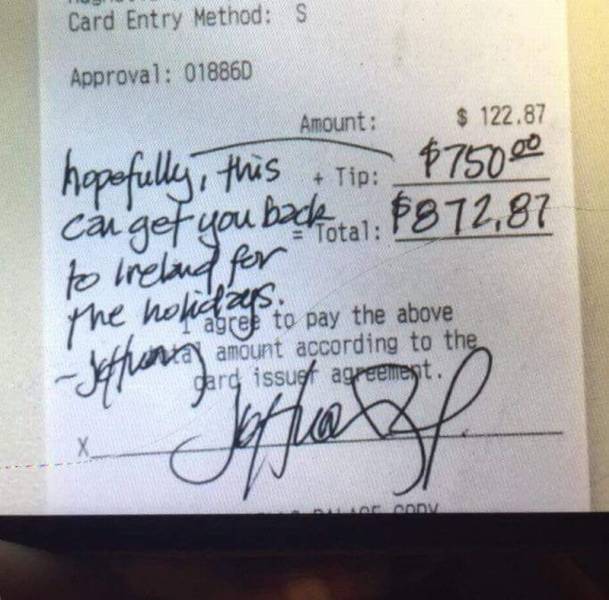 Card Entry Method: S
Approval: 01886D
Amount: $ 122.87
+ Tip: $750.00
= Total: $872.87
hopefully, this
can get you back
to Ireland for
the holidays.
I agree to pay the above
amount according to the
card issuer agreement.
X
COPY